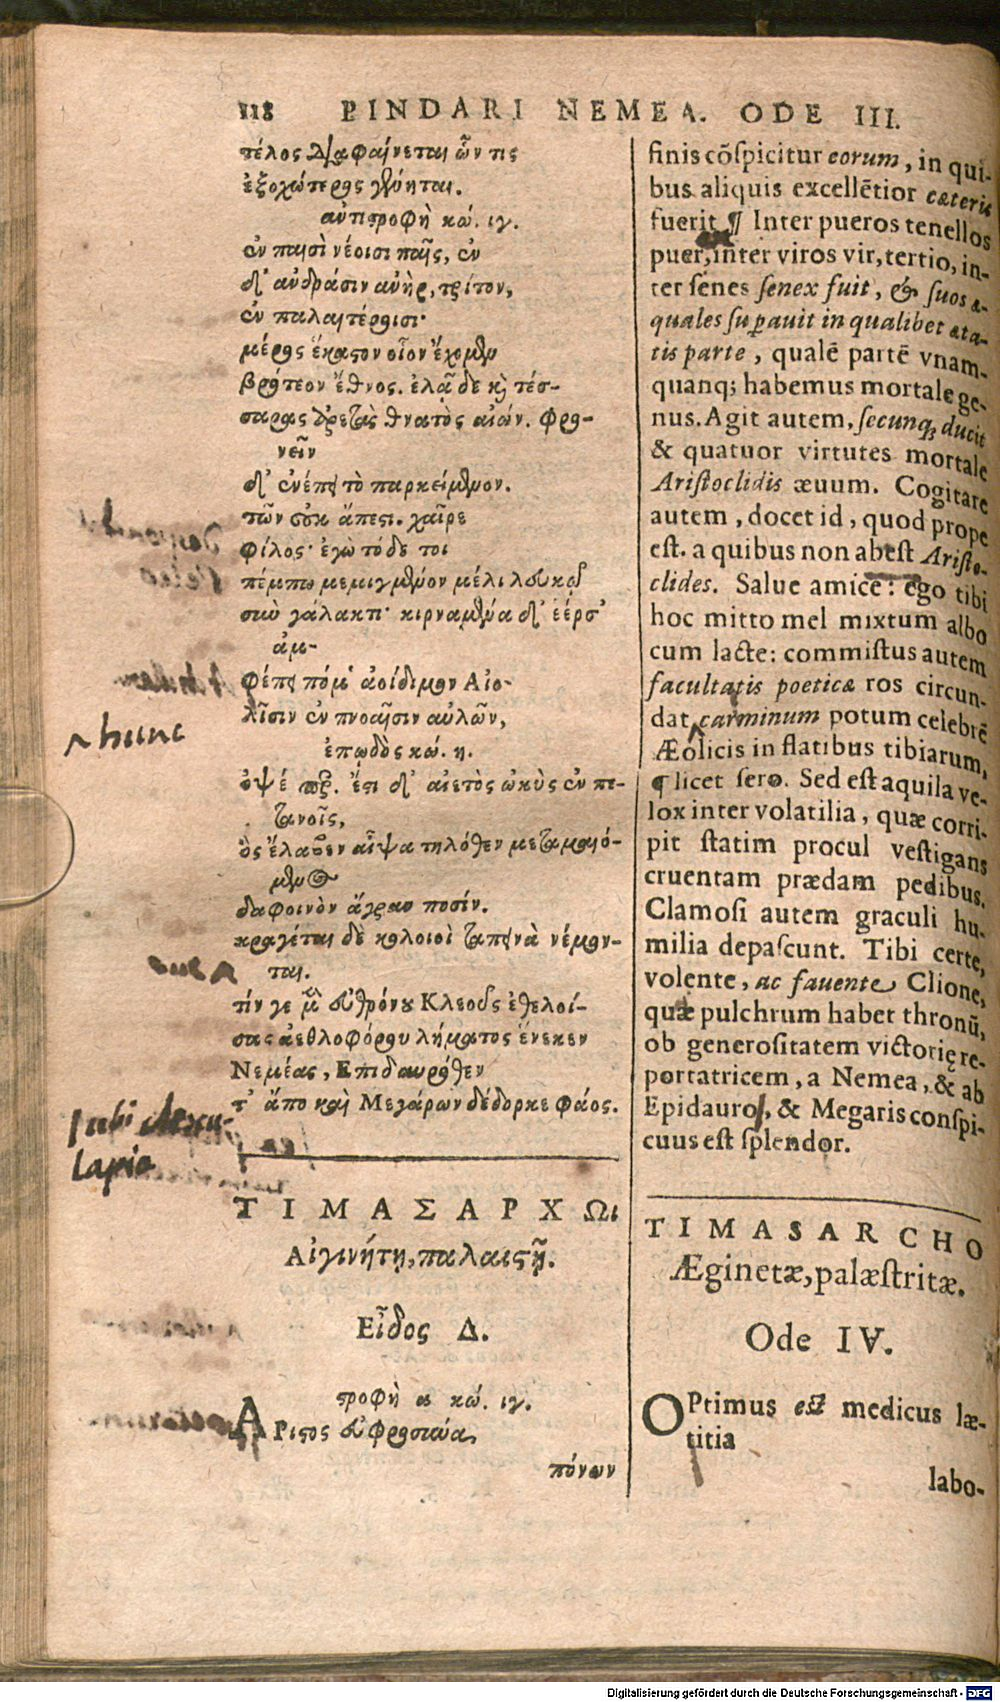 118 PINDARI NEMEA. ODE III.
τέλος διαφαίνεται ὧν τις
ἐξοχώτερος γένηται.
ἀντιστροφὴ κώ. ιγ.
ἐν παισὶ νέοισι παῖς, ἐν
δ' ἀνδράσιν ἀνὴρ, τρίτον,
ἐν παλαιτέροισι·
μέρος ἕκαστον οἷον ἔχομεν
βρότεον ἔθνος. ἐλᾷ δε καὶ τέσ-
σαρας ἀρετὰς θνατὸς αἰών. φρο-
νεῖν
δ' ἐνέπει τὸ παρκείμενον.
τῶν οὐκ ἄπεστι. χαῖρε
φίλος· ἐγὼ τόδε τοι
πέμπω μεμιγμένον μέλι λευκῷ
σιὼ γάλακτι· κιρναμένα δ' ἔερσ'
ἀμ-
φέπει πόμ' ἀοίδιμον Αἰο-
λῇσιν ἐν πνοαῖσιν αὐλῶν,
ἐπῳδὸς κώ. η.
ὀψέ περ. ἔστι δ' αἰετὸς ὠκὺς ἐν πε-
τανοῖς,
ὃς ἔλαβεν αἶψα τηλόθεν μεταμαιό-
μενος
δαφοινὸν ἄγραν ποσίν.
κραγέται δὲ κολοιοὶ ταπεινὰ νέμον-
ται.
τίν γε μὲν εὐθρόνου Κλεοῦς ἐθελοί-
σας ἀεθλοφόρου λήματος ἕνεκεν
Νεμέας, Ἐπιδαυρόθεν
τ' ἄπο καὶ Μεγάρων δέδορκε φάος.
ΤΙΜΑΣΑΡΧΩι
Αἰγινήτῃ, παλαιστῇ.
Εἶδος Δ.
στροφὴ α κώ. ιγ.
ΑΡιστος εὐφροσύνα
πόνων
finis cōspicitur eorum, in qui-
bus aliquis excellētior cæteris
fuerit ¶ Inter pueros tenellos
puer, inter viros vir, tertio, in-
ter senes senex fuit, & suos æ-
quales superauit in qualibet æta-
tis parte, qualē partē vnam-
quanq; habemus mortale ge-
nus. Agit autem, secunq; ducit
& quatuor virtutes mortale
Aristoclidis æuum. Cogitare
autem, docet id, quod prope
est. a quibus non abest Aristo-
clides. Salue amice: ego tibi
hoc mitto mel mixtum albo
cum lacte: commistus autem
facultatis poeticæ ros circun-
dat carminum potum celebrē
Æolicis in flatibus tibiarum,
¶ licet sero. Sed est aquila ve-
lox inter volatilia, quæ corri-
pit statim procul vestigans
cruentam prædam pedibus.
Clamosi autem graculi hu-
milia depascunt. Tibi certe,
volente, ac fauente Clione,
quæ pulchrum habet thronū,
ob generositatem victorię re-
portatricem, a Nemea, & ab
Epidauro, & Megaris conspi-
cuus est splendor.
TIMASARCHO
Æginetæ, palæstritæ.
Ode IV.
OPtimus est medicus læ-
titia
labo-
hunc
Digitalisierung gefördert durch die Deutsche Forschungsgemeinschaft - DFG